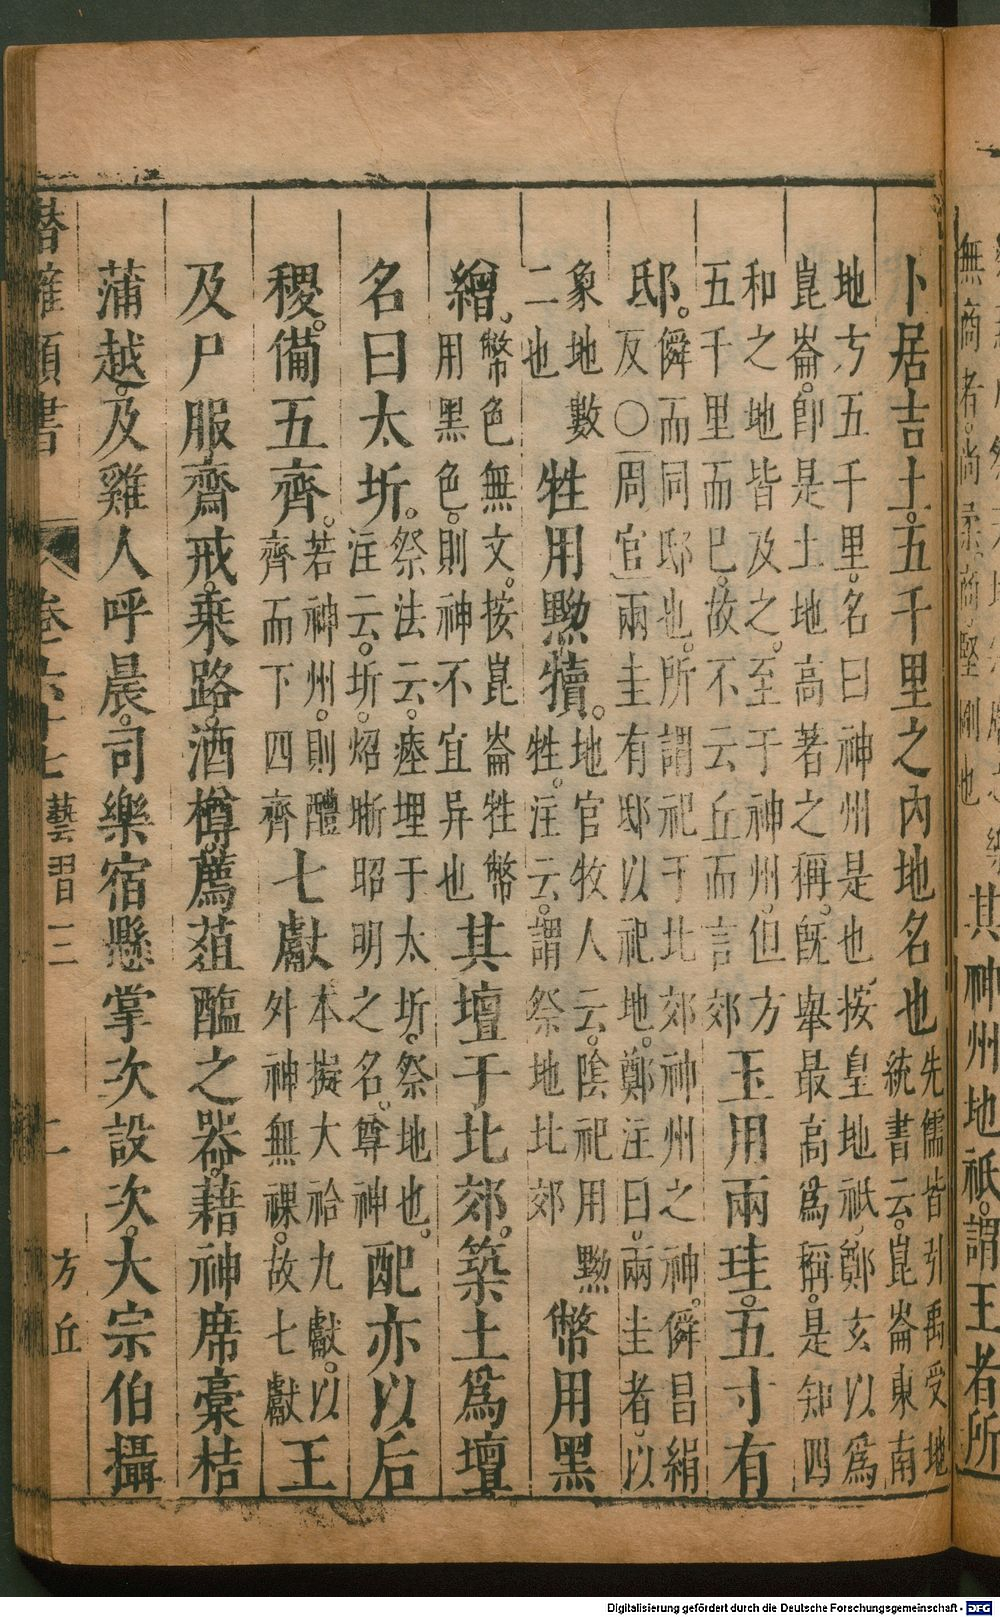 無商者。尚柔。商。堅剛也
其神州地祇。謂王者所
卜居吉土。五千里之內地名也先儒皆引禹受地統書云。崑崙東南
地方五千里。名曰神州是也。按皇地祇。鄭玄以爲
崑崙。卽是土地高著之稱。旣舉最高爲稱。是知四
和之地皆及之。至于神州。但方五千里而已。故不云丘而言郊玉用兩珪。五寸有
邸。僢而同邸也。所謂祀于北郊神州之神。僢昌絹反〇周官兩圭有邸以祀地。鄭注曰。兩圭者。以
象地數二也牲用黝犢。地官牧人云。陰祀用黝牲。注云。謂祭地北郊幣用黑
繒。幣色無文。按崑崙牲幣用黑色。則神不宜异也其壇于北郊。築土爲壇
名曰太圻。祭法云。瘞埋于太圻。祭地也。注云。圻。炤晣昭明之名。尊神配亦以后
稷。備五齊。若神州。則醴齊而下四齊七獻本擬大祫九獻。以外神無祼。故七獻王
及尸服齋戒。乗路。酒樽。薦葅醢之器。藉神席槀桔
蒲越。及雞人呼晨。司樂宿懸掌次設次。大宗伯攝
類書 卷六十七 藝習 二 方丘
Digitalisierung gefördert durch die Deutsche Forschungsgemeinschaft - DFG